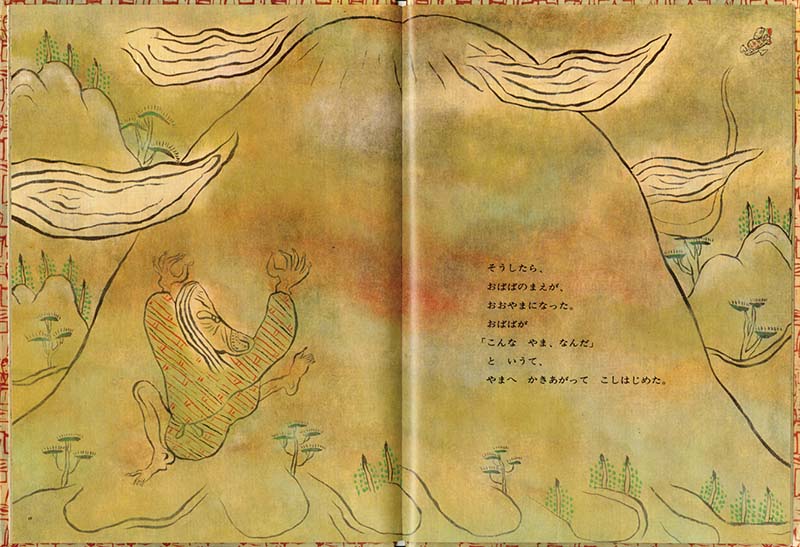 そうしたら、
おばばのまえが、
おおやまになった。
おばばが
「こんな　やま、なんだ」
と　いうて、
やまへ　かきあがって　こしはじめた。